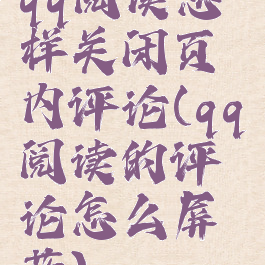 qq阅读怎
样关闭页
内评论(qq
阅读的评
论怎么屏
蔽)